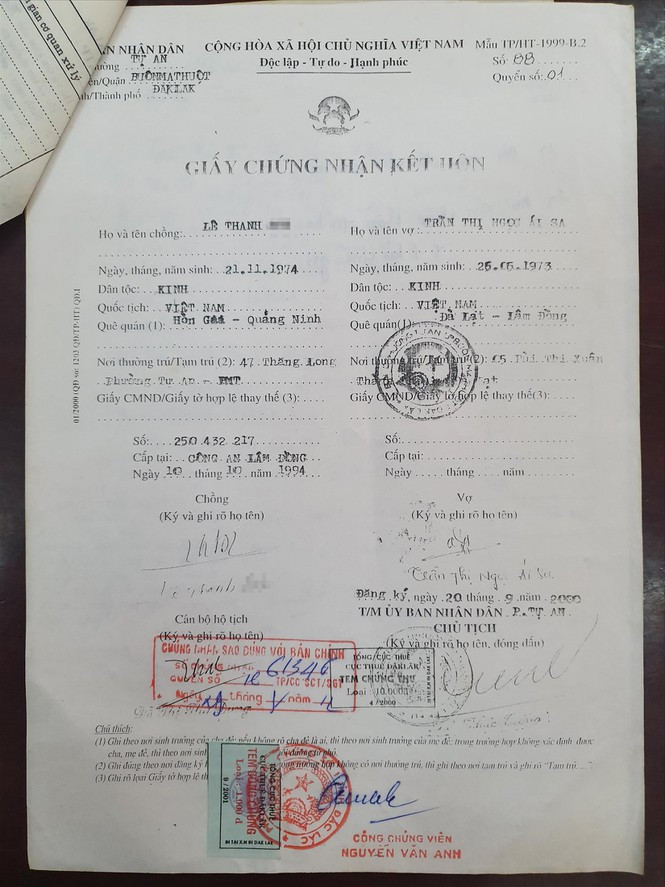 gian cơ quan xử lý
AN NHÂN DÂN
TỰ AN
BUÔNMATHUỘT
ĐAKLAK
CỘNG HÒA XÃ HỘI CHỦ NGHĨA VIỆT NAM
Độc lập - Tự do - Hạnh phúc
Mẫu TP/HT-1999-B.2
Số: 88
Quyển số: 01
GIẤY CHỨNG NHẬN KẾT HÔN
Họ và tên chồng: LÊ THANH
Ngày, tháng, năm sinh: 21.11.1974
Dân tộc: KINH
Quốc tịch: VIỆT NAM
Quê quán (1): Hòn Gai - Quảng Ninh
Nơi thường trú/Tạm trú (2): 47 Thăng Long
Phường Tự An - BMT
Giấy CMND/Giấy tờ hợp lệ thay thế (3):
Số: 250.432.217
Cấp tại: CÔNG AN LÂM ĐỒNG
Ngày 10 tháng 10 năm 1994
Chồng
(Ký và ghi rõ họ tên)
Cán bộ hộ tịch
(Ký và ghi rõ họ tên)
Họ và tên vợ: TRẦN THỊ NGỌC ÁI SA
Ngày, tháng, năm sinh: 25.05.1973
Dân tộc: KINH
Quốc tịch: VIỆT NAM
Quê quán (1): Đà Lạt - Lâm Đồng
Nơi thường trú/Tạm trú (2): Bùi Thị Xuân
Giấy CMND/Giấy tờ hợp lệ thay thế(3):
Số:
Cấp tại:
Ngày tháng năm
Vợ
(Ký và ghi rõ họ tên)
Trần Thị Ngọc Ái Sa
Đăng ký, ngày 20 tháng 9 năm 2000
T/M ỦY BAN NHÂN DÂN P. TỰ AN
CHỦ TỊCH
(Ký và ghi rõ họ tên, đóng dấu)
CHỨNG NHẬN SAO ĐÚNG VỚI BẢN CHÍNH
61346
QUYỂN SỐ TP/CC SCT/SGT
Ngày tháng năm
TỔNG CỤC THUẾ
CỤC THUẾ ĐAKLAK
TEM CHỨNG THƯ
4/2000
Chú thích:
(1) Ghi theo nơi sinh trưởng của cha đẻ; nếu không rõ cha đẻ là ai, thì theo nơi sinh trưởng của mẹ đẻ; trong trường hợp không xác định được
cha, mẹ đẻ, thì theo nơi sinh
(2) Ghi theo nơi đăng ký trường hợp không có nơi thường trú, thì ghi theo nơi tạm trú và ghi rõ "Tạm trú..."
(3) Ghi rõ loại Giấy tờ hợp lệ
TỔNG CỤC THUẾ
9/2001
ĐẮC LẮC
CÔNG CHỨNG VIÊN
NGUYỄN VÂN ANH